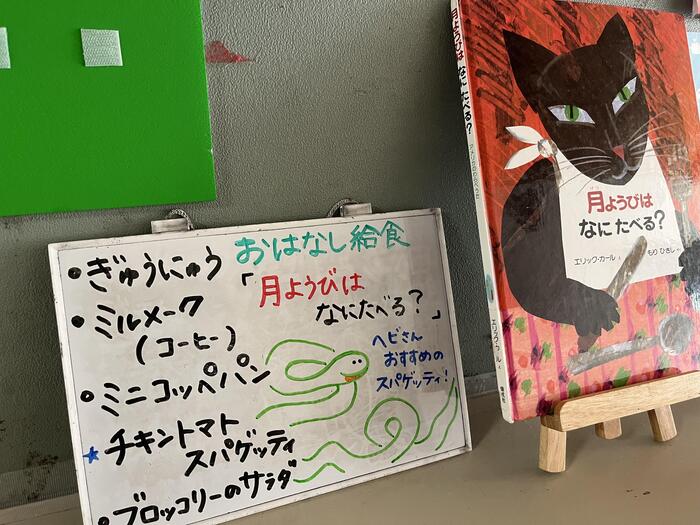 おはなし給食
「月ようびは
なにたべる？」
• ぎゅうにゅう
• ミルメーク
(コーヒー)
• ミニコッペパン
★チキントマト
スパゲッティ
• ブロッコリーのサラダ
ヘビさん
おすすめの
スパゲッティ!
月ようびは なに たべる?
エリック・カール
月ようびは
なに たべる?
エリック・カール
もり ひさし